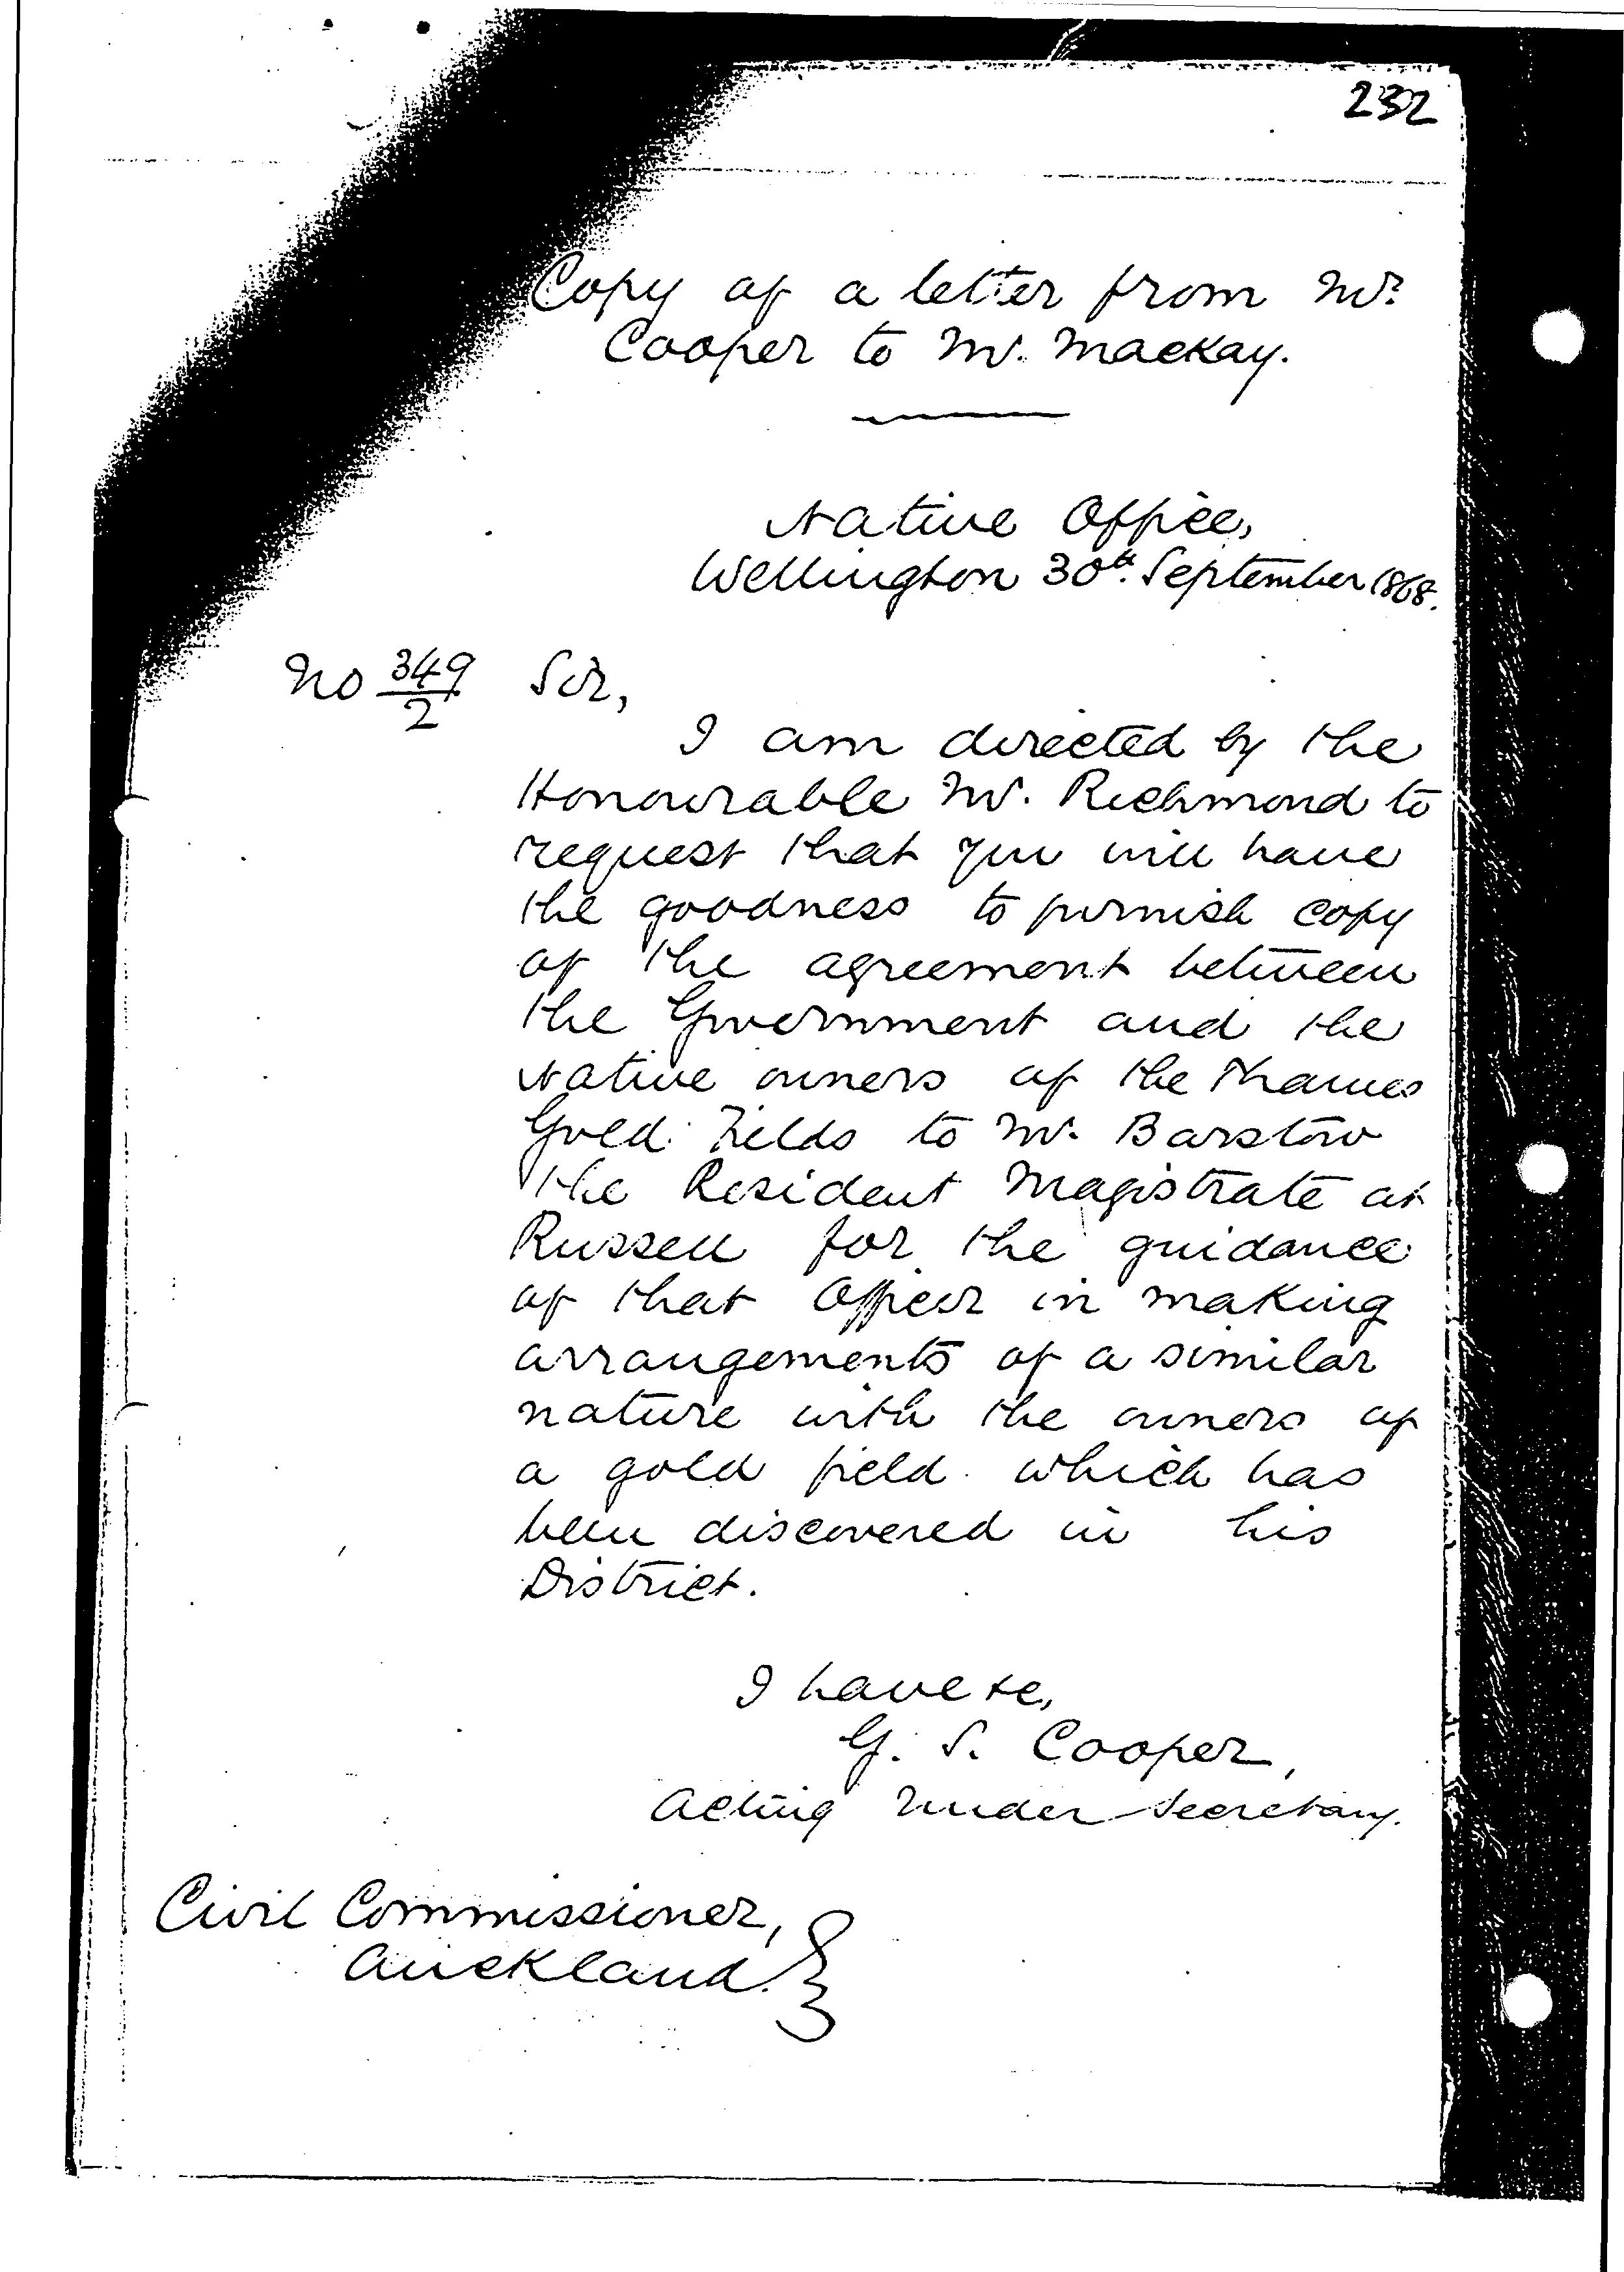 232
Copy of a letter from Mr.
Cooper to Mr. Mackay.
Native Office,
Wellington 30th. September 1868.
No 349/2 Sir,
I am directed by the
Honourable Mr. Richmond to
request that you will have
the goodness to furnish copy
of the agreement between
the Government and the
Native owners of the Thames
Gold Fields to Mr. Barstow
the Resident Magistrate at
Russell for the guidance
of that Officer in making
arrangements of a similar
nature with the owners of
a gold field which has
been discovered in his
District.
I have &c,
G. S. Cooper,
Acting Under Secretary.
Civil Commissioner,
Auckland.